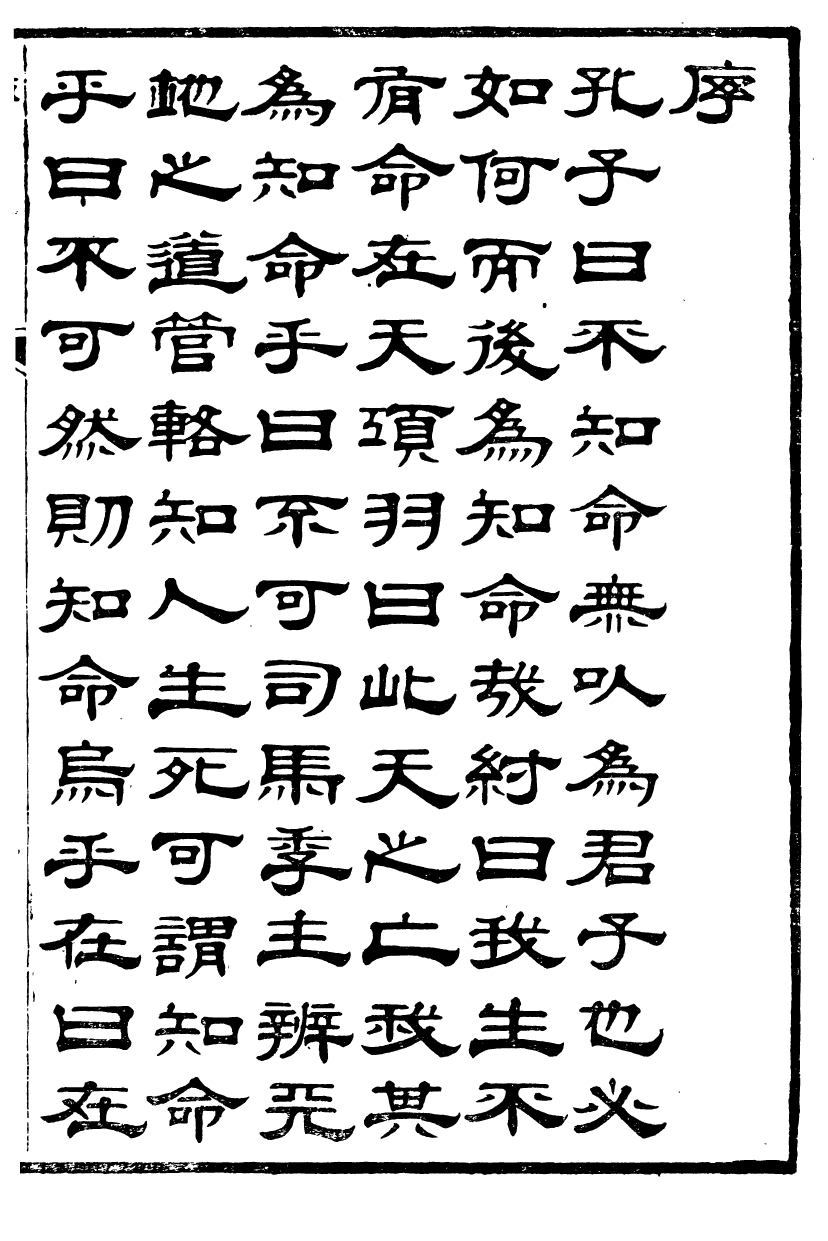 序
孔子曰不知命無以為君子也必
如何而後為知命哉紂曰我生不
有命在天項羽曰此天之亡我其
為知命乎曰不可司馬季主辨天
地之道管輅知人生死可謂知命
乎曰不可然則知命烏乎在曰在